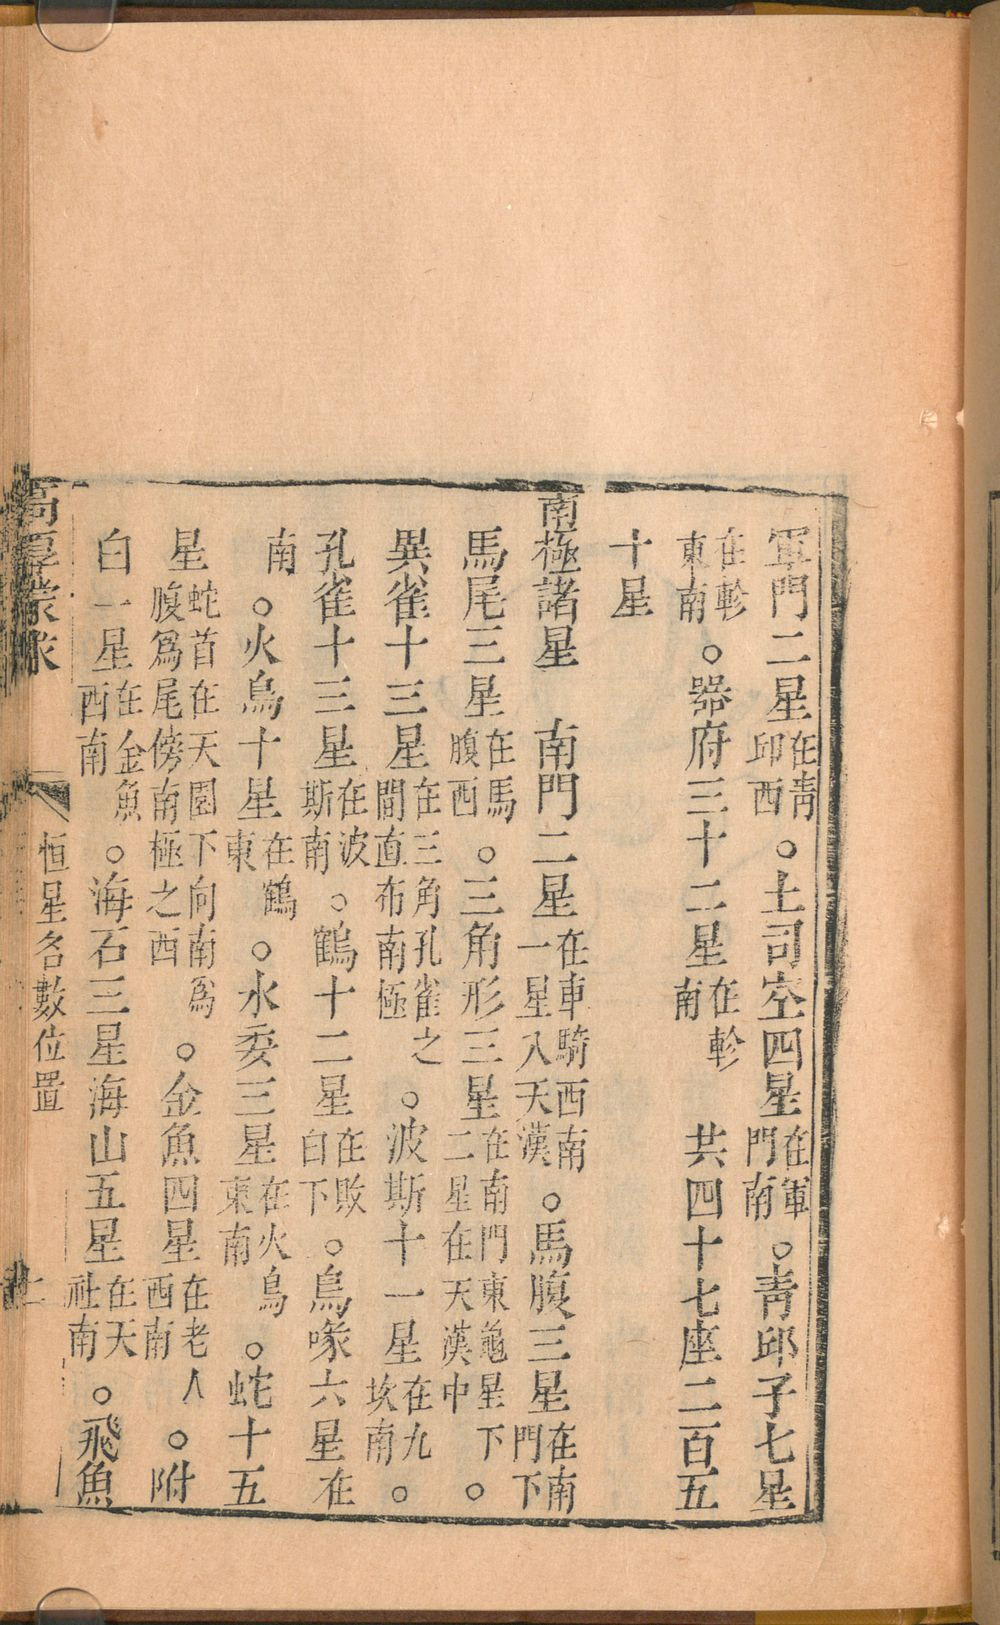 軍門二星在青邱西○土司空四星在軍門南○青邱子七星
在軫東南○器府三十二星在軫南 共四十七座二百五
十星
南極諸星 南門二星在車騎西南一星入天漢○馬腹三星在南門下
馬尾三星在馬腹西○三角形三星在南門東龜星下二星在天漢中○
異雀十三星在三角孔雀之間直布南極○波斯十一星在九坎南○
孔雀十三星在波斯南○鶴十二星在敗白下○鳥喙六星在
南○火鳥十星在鶴東○水委三星在火鳥東南○蛇十五
星蛇首在天園下向南爲腹爲尾傍南極之西○金魚四星在老人西南○附
白一星在金魚西南○海石三星海山五星在天社南○飛魚
高厚蒙求 恒星各數位置